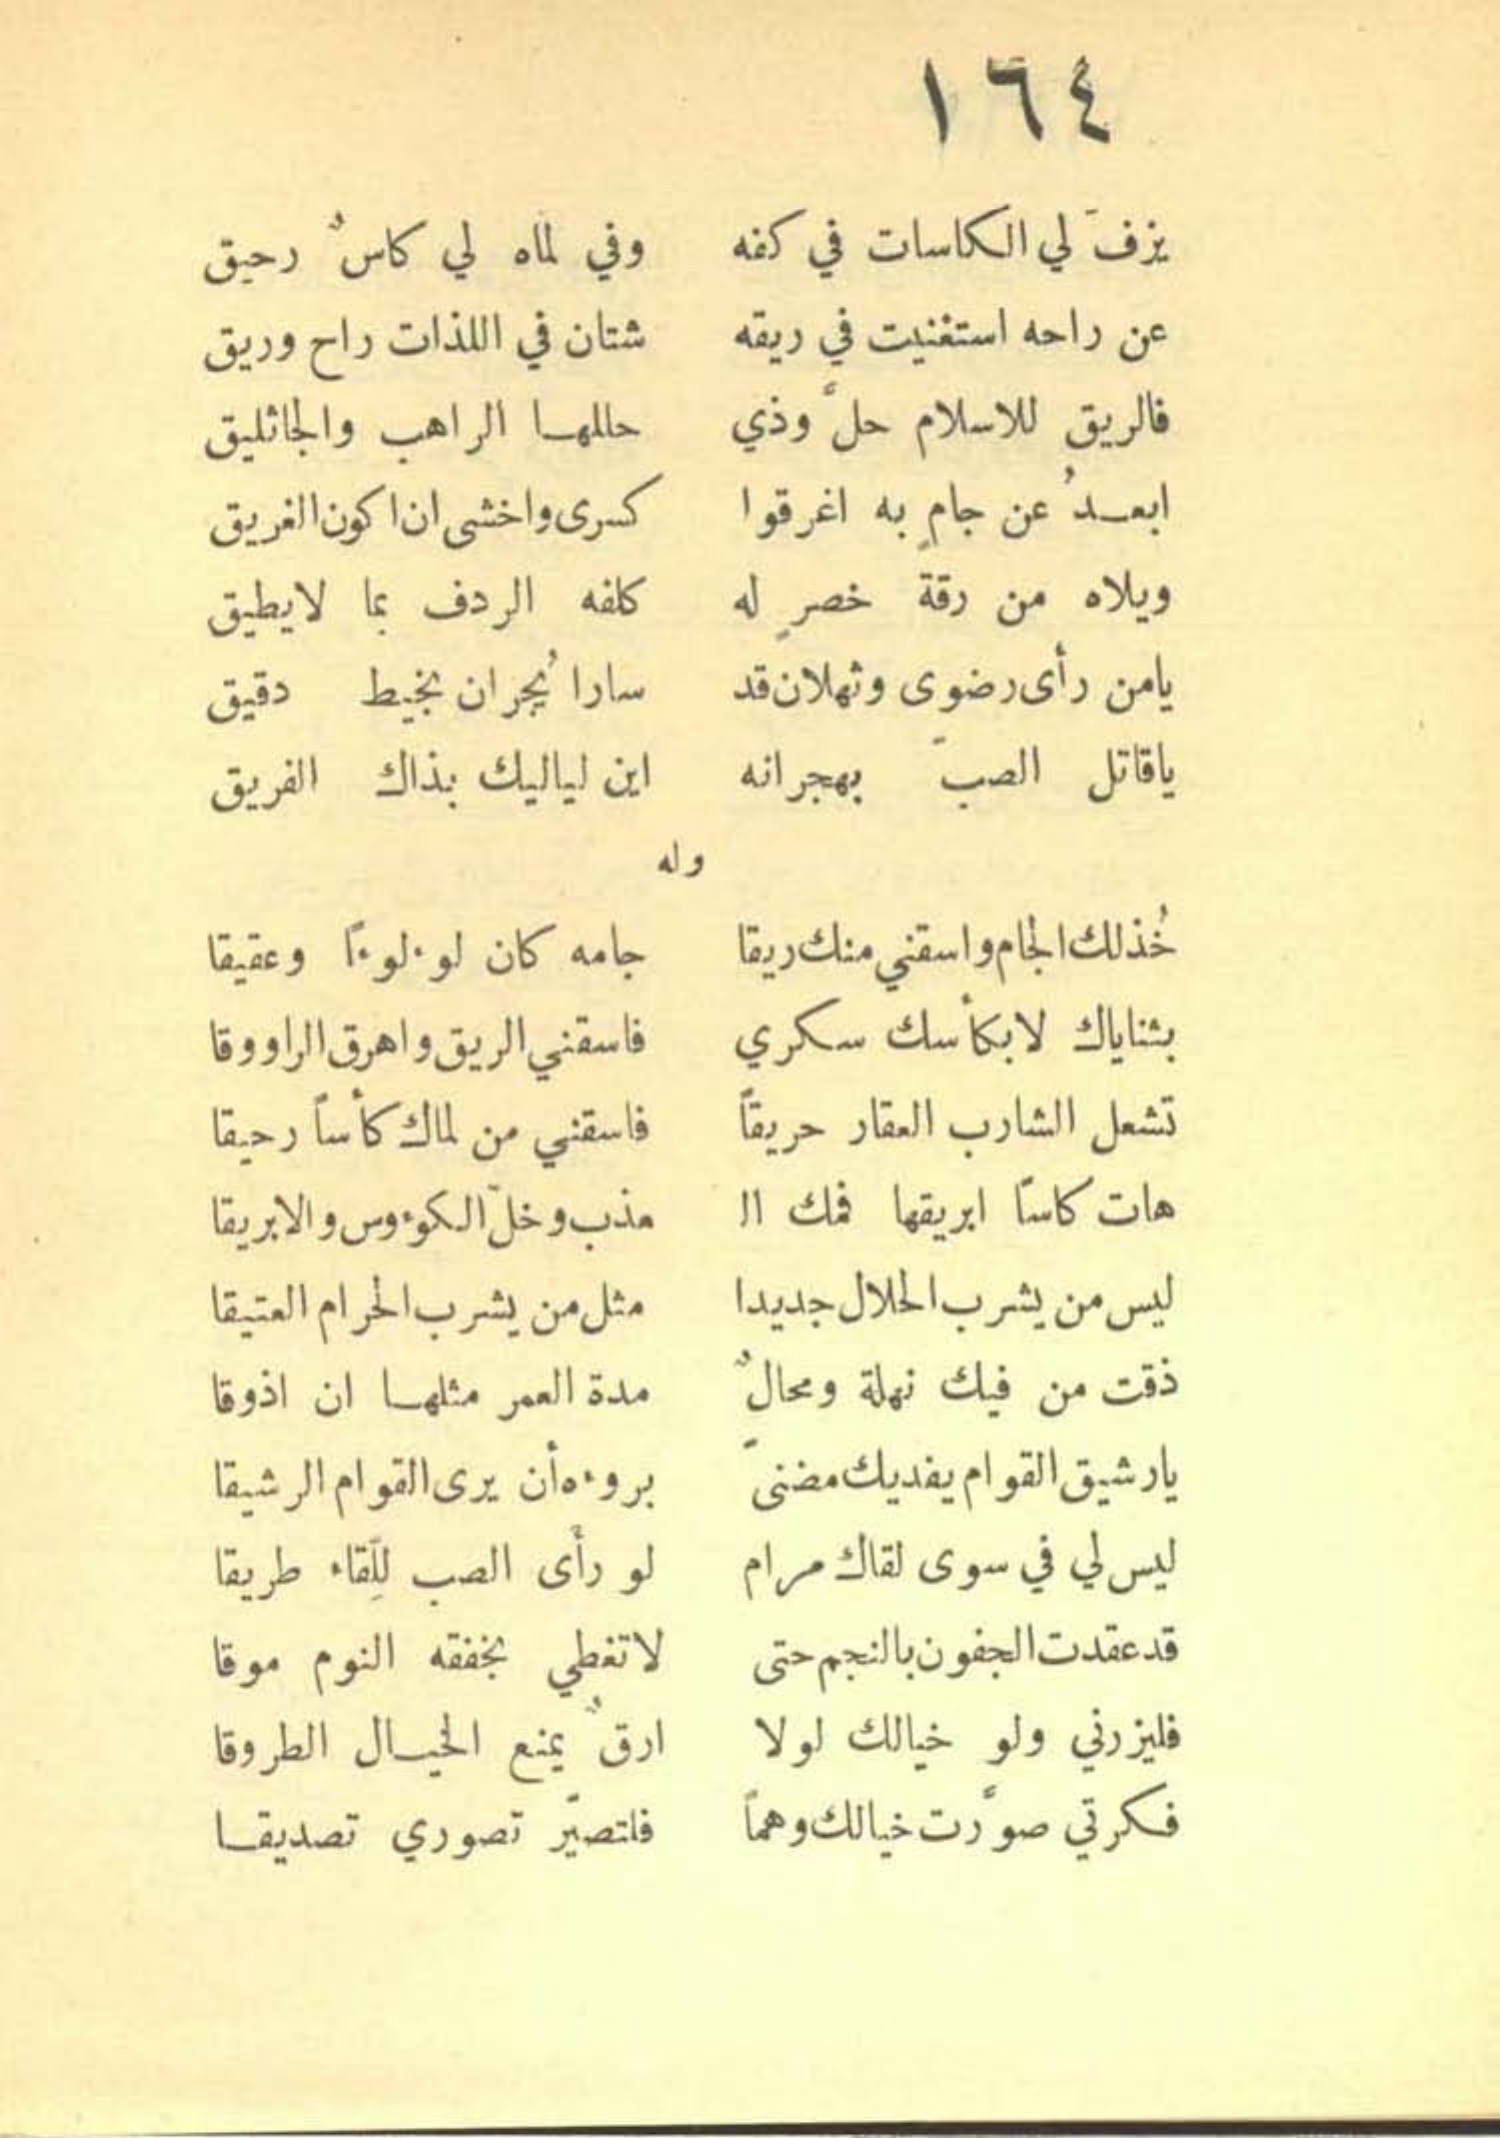 ١٦٤
يزفّ لي الكاسات في كفه وفي لماه لي كاسٌ رحيق
عن راحه استغنيت في ريقه شتان في اللذات راح وريق
فالريق للاسلام حلٌّ وذي حللهـا الراهب والجاثليق
ابعـدُ عن جامٍ به اغرقوا كسرى واخشى ان اكون الغريق
ويلاه من رقة خصرٍ له كلفه الردف بما لايطيق
يامن رأى رضوى وثهلان قد سارا يُجران بخيط دقيق
ياقاتل الصبّ بهجرانه اين لياليك بذاك الفريق
وله
خُذ لك الجام واسقني منك ريقا جامه كان لوءلوءًا وعقيقا
بثناياك لا بكأسك سكري فاسقني الريق واهرق الراووقا
تشعل الشارب العقار حريقاً فاسقني من لماك كأساً رحيقا
هات كاسًا ابريقها فمك الـ عذب وخلّ الكوءوس والابريقا
ليس من يشرب الحلال جديدا مثل من يشرب الحرام العتيقا
ذقت من فيك نهلة ومحالٌ مدة العمر مثلهـا ان اذوقا
يارشيق القوام يفديك مضنىً بروءه أن يرى القوام الرشيقا
ليس لي في سوى لقاك مرام لو رأى الصب للِّقاء طريقا
قد عقدت الجفون بالنجم حتى لا تغطي بخفقه النوم موقا
فليزرني ولو خيالك لولا ارقٌ يمنع الخيـال الطروقا
فـكرتي صوَّرت خيالك وهماً فلتصيّر تصوري تصديقـا